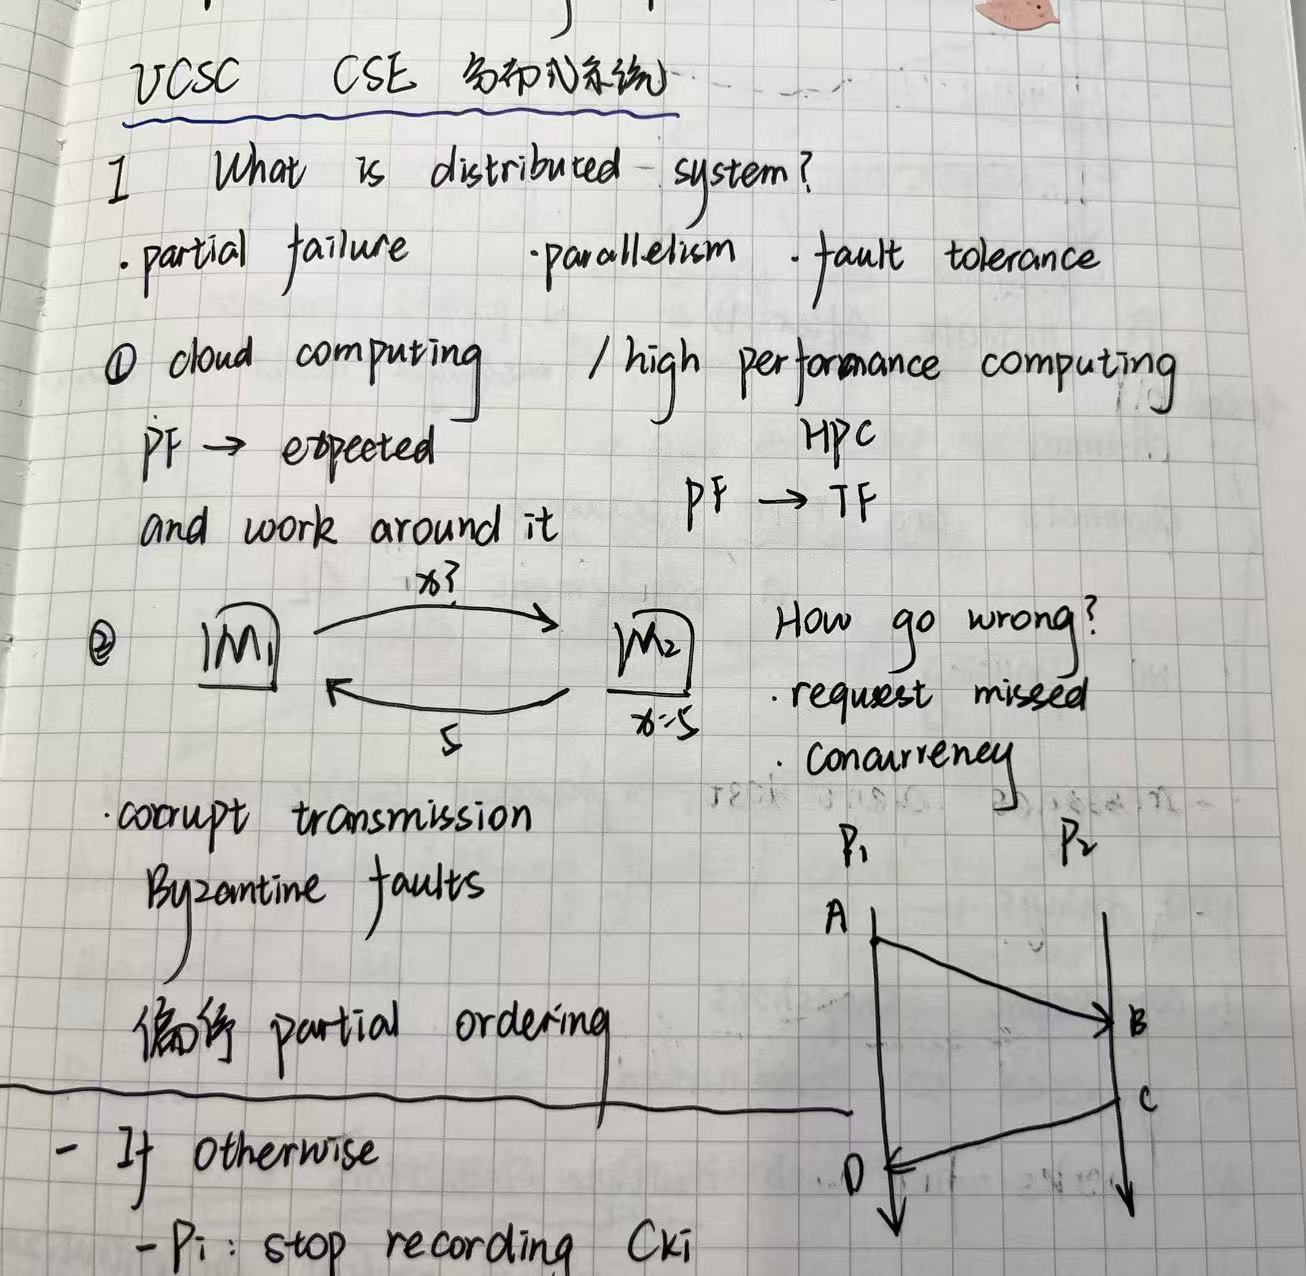 UCSC CSE 分布式系统
I What is distributed system?
· partial failure · parallelism · fault tolerance
① cloud computing / high performance computing
HPC
PF → expected
PF → TF
and work around it
x?
② M1 M2 How go wrong?
· request missed
5 x=5
· concurrency
· corrupt transmission
P1 P2
Byzantine faults
A
偏序 partial ordering B
C
- If otherwise
D
- Pi: stop recording Cki